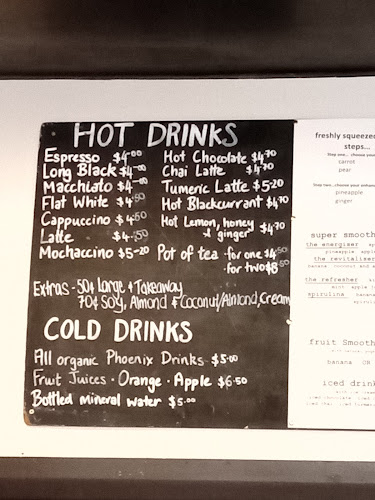 HOT DRINKS
Espresso $4.00
Long Black $4.00
Macchiato $4.00
Flat White $4.50
Cappuccino $4.60
Latte $4.50
Mochaccino $5.20
Hot Chocolate $4.70
Chai Latte $4.70
Tumeric Latte $5.20
Hot Blackcurrant $4.70
Hot Lemon, honey
+ ginger $4.70
Pot of tea · for one $4.50
· for two $8.50
Extras - 50¢ Large + Takeaway
70¢ Soy, Almond + Coconut/Almond, Cream
COLD DRINKS
All organic Phoenix Drinks · $5.00
Fruit Juices · Orange · Apple $6.50
Bottled mineral water $5.00
freshly squeezed
steps...
carrot
pear
pineapple
ginger
super smooth
the energiser
pineapple
the revitaliser
banana coconut
the refresher
mint apple
spirulina banana
fruit Smooth
banana OR
iced drin